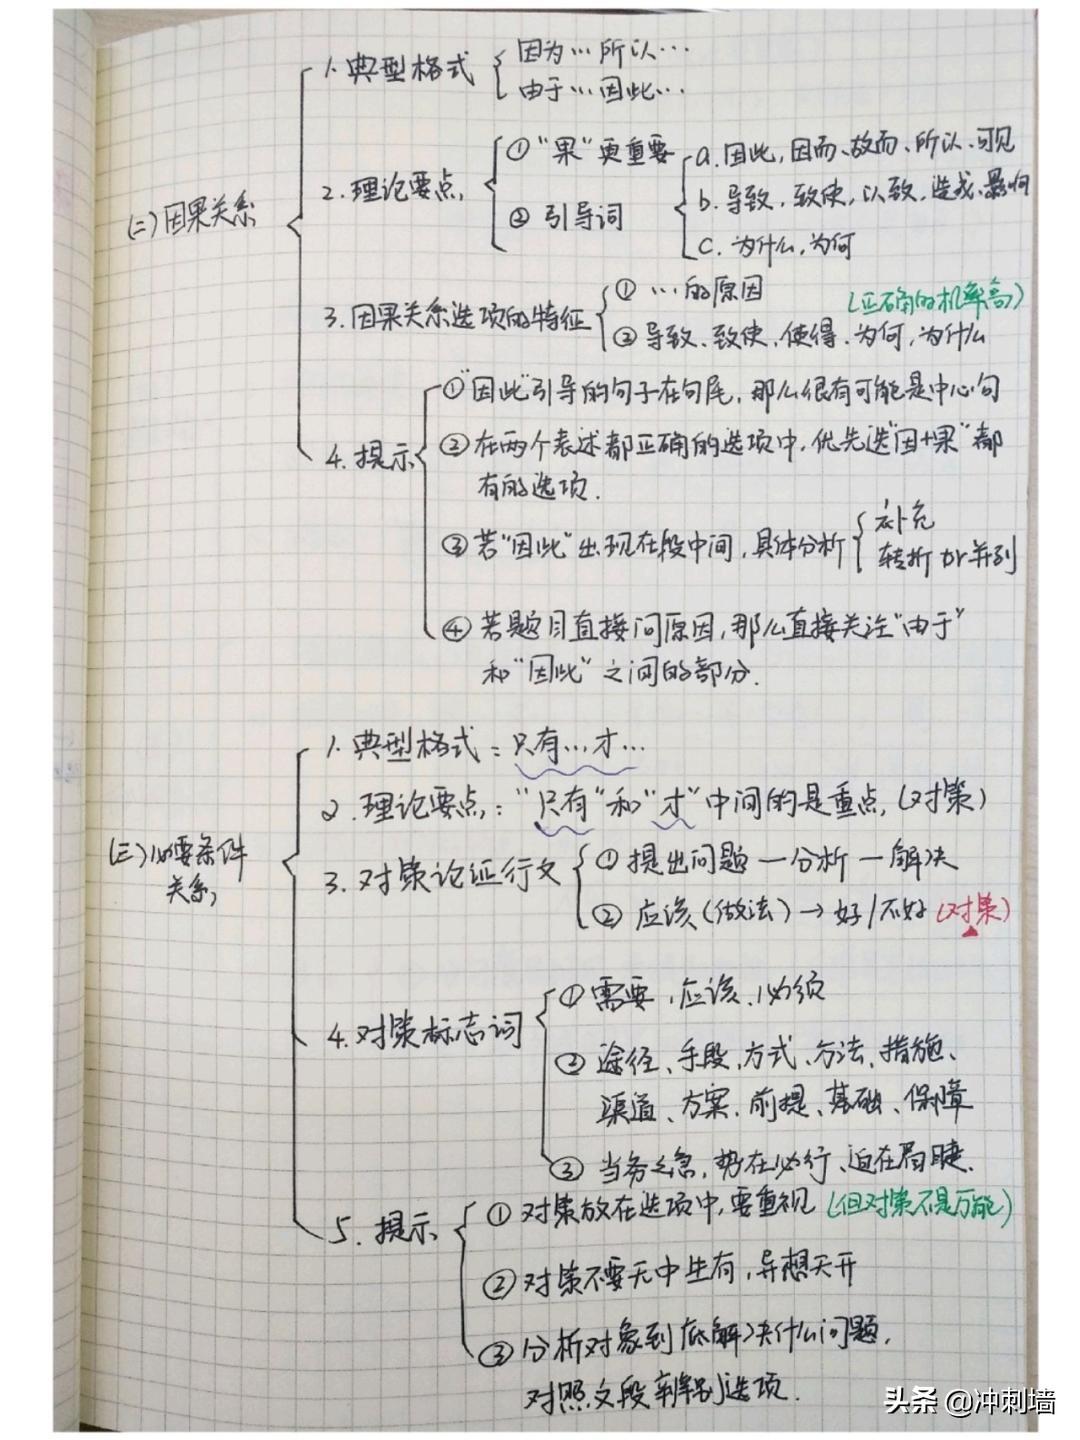 (二)因果关系
1.典型格式
因为…所以…
由于…因此…
2.理论要点
①“果”更重要
②引导词
a.因此,因而、故而、所以、可见
b.导致,致使,以致,造成、影响
c.为什么,为何
3.因果关系选项的特征
①…的原因
(正确的机率高)
②导致、致使、使得、为何,为什么
4.提示
①“因此”引导的句子在句尾,那么很有可能是中心句
②在两个表述都正确的选项中,优先选“因+果”都
有的选项.
③若“因此”出现在段中间,具体分析
补充
转折or并列
④若题目直接问原因,那么直接关注“由于”
和“因此”之间的部分.
(三)必要条件
关系
1.典型格式:只有…才…
2.理论要点:“只有”和“才”中间的是重点,(对策)
3.对策论证行文
①提出问题—分析—解决
②应该(做法)→好/不好(对策)
4.对策标志词
①需要,应该、必须
②途径、手段,方式、方法、措施、
渠道、方案、前提、基础、保障
③当务之急,势在必行、迫在眉睫.
5.提示
①对策放在选项中,要重视(但对策不是万能)
②对策不要无中生有,异想天开
③分析对象到底解决什么问题,
对照文段辨别选项.
头条@冲刺墙